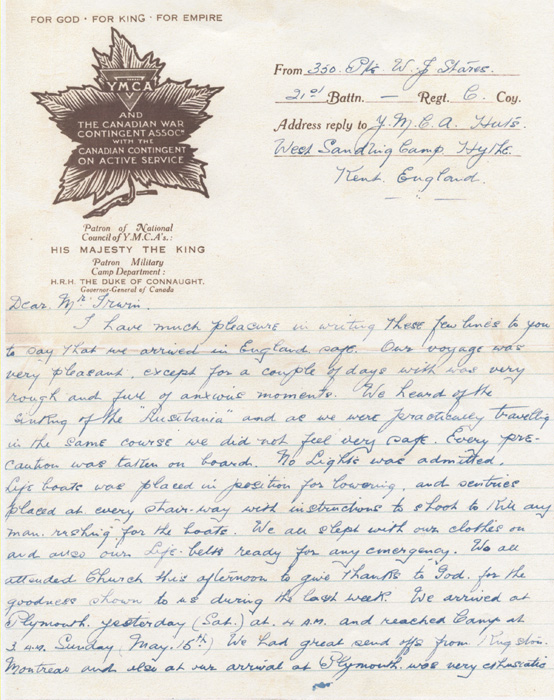 FOR GOD · FOR KING · FOR EMPIRE
YMCA
AND
THE CANADIAN WAR
CONTINGENT ASSOCN
WITH THE
CANADIAN CONTINGENT
ON ACTIVE SERVICE
Patron of National
Council of Y.M.C.A's.:
HIS MAJESTY THE KING
Patron Military
Camp Department:
H.R.H. THE DUKE OF CONNAUGHT,
Governor-General of Canada
From 350. Pte W. J Stares.
21st Battn. — Regt. C. Coy.
Address reply to Y.M.C.A. Huts.
West Sandling Camp Hythe.
Kent. England.
Dear. Mr. Irwin.
I have much pleasure in writing these few lines to you
to say that we arrived in England safe. Our voyage was
very pleasant, except for a couple of days wich was very
rough and full of anxious moments. We heard of the
sinking of the "Lusitania" and as we were practically travelling
in the same course we did not feel very safe. Every pre-
caution was taken on board. No Lights was admitted,
Life boats was placed in position for lowering, and sentries
placed at every stair-way with instructions to shoot to kill any
man rushing for the boats. We all slept with our clothes on
and also our Life-belts ready for any emergency. We all
attended Church this afternoon to give thanks to God. for the
goodness shown to us during the last week. We arrived at
Plymouth yesterday (Sat.) at. 4 A.M. and reached Camp at
3 a.m. Sunday (May. 15th) We had great send offs from Kingston.
Montreal and also at our arrival at Plymouth. was very